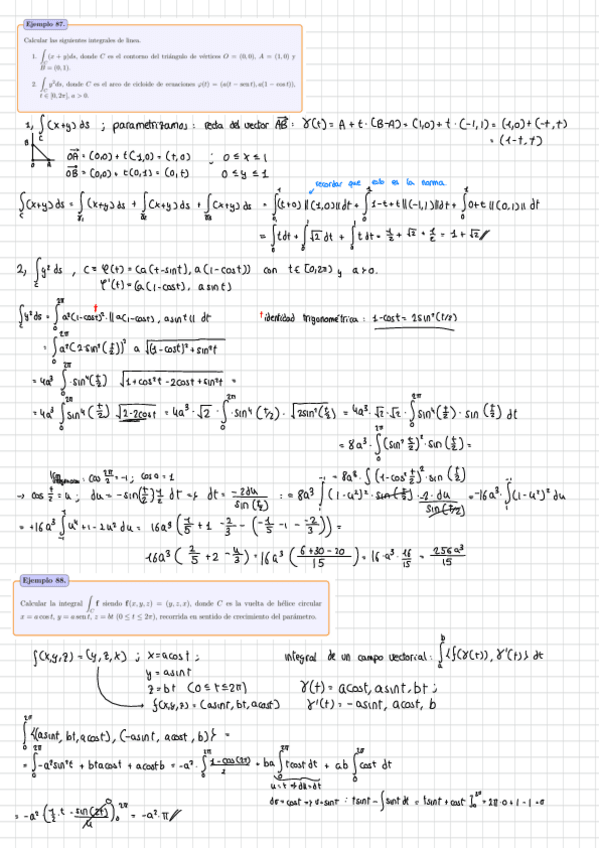 Ejemplo 87.
Calcular las siguientes integrales de línea.
1. ∫_C (x + y)ds, donde C es el contorno del triángulo de vértices O = (0,0), A = (1,0) y
B = (0,1).
2. ∫_C y²ds, donde C es el arco de cicloide de ecuaciones φ(t) = (a(t − sen t), a(1 − cos t)),
t ∈ [0, 2π], a > 0.
1, ∫_C (x+y) ds ; parametrizamos: recta del vector AB: γ(t) = A + t·(B-A) = (1,0) + t·(-1,1) = (1,0) + (-t,t)
= (1-t, t)
B
A
OA = (0,0) + t(1,0) = (t,0) ; 0 ≤ x ≤ 1
OB = (0,0) + t(0,1) = (0,t) 0 ≤ y ≤ 1
recordar que esto es la norma
∫_C (x+y) ds = ∫ (x+y) ds + ∫ (x+y) ds + ∫ (x+y) ds = ∫_0^1 (t+0) ||(1,0)|| dt + ∫_0^1 1-t+t ||(-1,1)|| dt + ∫_0^1 0+t ||(0,1)|| dt
= ∫ t dt + ∫ √2 dt + ∫ t dt = 1/2 + √2 + 1/2 = 1 + √2 //
2, ∫_C y² ds , C = φ(t) = (a(t-sint), a(1-cost)) con t∈[0,2π] y a>0.
φ'(t) = (a(1-cost), a sint)
∫_C y² ds = ∫_0^{2π} a²(1-cost)² · ||a(1-cost), a sint|| dt
† identidad trigonométrica: 1-cost = 2sin²(t/2)
= ∫_0^{2π} a² (2 sin²(t/2))² a √((1-cost)² + sin²t
= 4a³ ∫_0^{2π} · sin⁴(t/2) √(1+cos²t - 2cost + sin²t) =
= 4a³ ∫_0^{2π} sin⁴(t/2) √(2-2cost) = 4a³ · √2 · ∫_0^{2π} · sin⁴(t/2) · √(2sin²(t/2)) = 4a³ · √2 · √2 · ∫_0^{2π} sin⁴(t/2) · sin(t/2) dt
= 8a³ · ∫_0^{2π} (sin²(t/2))² · sin(t/2) =
cos 2π/2 = -1 ; cos 0 = 1
= 8a³ · ∫ (1-cos²t/2)² · sin(t/2)
→ cos t/2 = u ; du = -sin(t/2) 1/2 dt → dt = -2du/sin(t/2) : = 8a³ ∫_1^{-1} (1-u²)² · sin(t/2) · -2·du/sin(t/2) = -16a³ · ∫_1^{-1} (1-u²)² du
= +16a³ ∫_{-1}^1 u⁴ + 1 - 2u² du = 16a³ (1/5 + 1 - 2/3 - (-1/5 - 1 - -2/3)) =
16a³ (2/5 + 2 - 4/3) = 16a³ (6+30-20/15) = 16·a³ · 16/15 = 256a³/15
Ejemplo 88.
Calcular la integral ∫_C f siendo f(x, y, z) = (y, z, x), donde C es la vuelta de hélice circular
x = a cos t, y = a sen t, z = bt (0 ≤ t ≤ 2π), recorrida en sentido de crecimiento del parámetro.
f(x,y,z) = (y, z, x) ; x = a cost ;
integral de un campo vectorial: ∫_a^b {f(γ(t)), γ'(t)} dt
y = a sint
z = bt (0 ≤ t ≤ 2π)
γ(t) = a cost, a sint, bt ;
f(x,y,z) = (a sint, bt, a cost)
γ'(t) = -a sint, a cost, b
∫_0^{2π} {(a sint, bt, a cost), (-a sint, a cost, b)} =
= ∫_0^{2π} -a² sin²t + bta cost + a cost b = -a² · ∫_0^{2π} 1-cos(2t)/2 + ba ∫_0^{2π} t cost dt + ab ∫_0^{2π} cost dt
u = t → du = dt
dv = cost → v = sint : t sint - ∫ sint dt = t sint + cost ]_0^{2π} = 2π·0 + 1 - 1 = 0
= -a² (1/2 · t - sin(2t)/4)_0^{2π} = -a² · π //